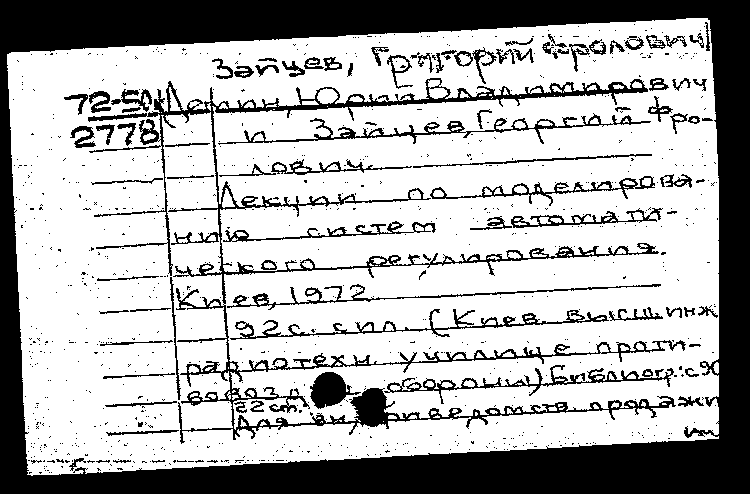 Зайцев, Григорий Фролович
72-50
2778
Демин, Юрий Владимирович
и Зайцев, Георгий Фро-
лович.
Лекции по моделирова-
нию систем автомати-
ческого регулирования.
Киев, 1972
92 с. с ил. (Киев. высш. инж
радиотехн. училище проти-
вовозд обороны) Библиогр.: с. 90
22 cm.
Для вн продажи